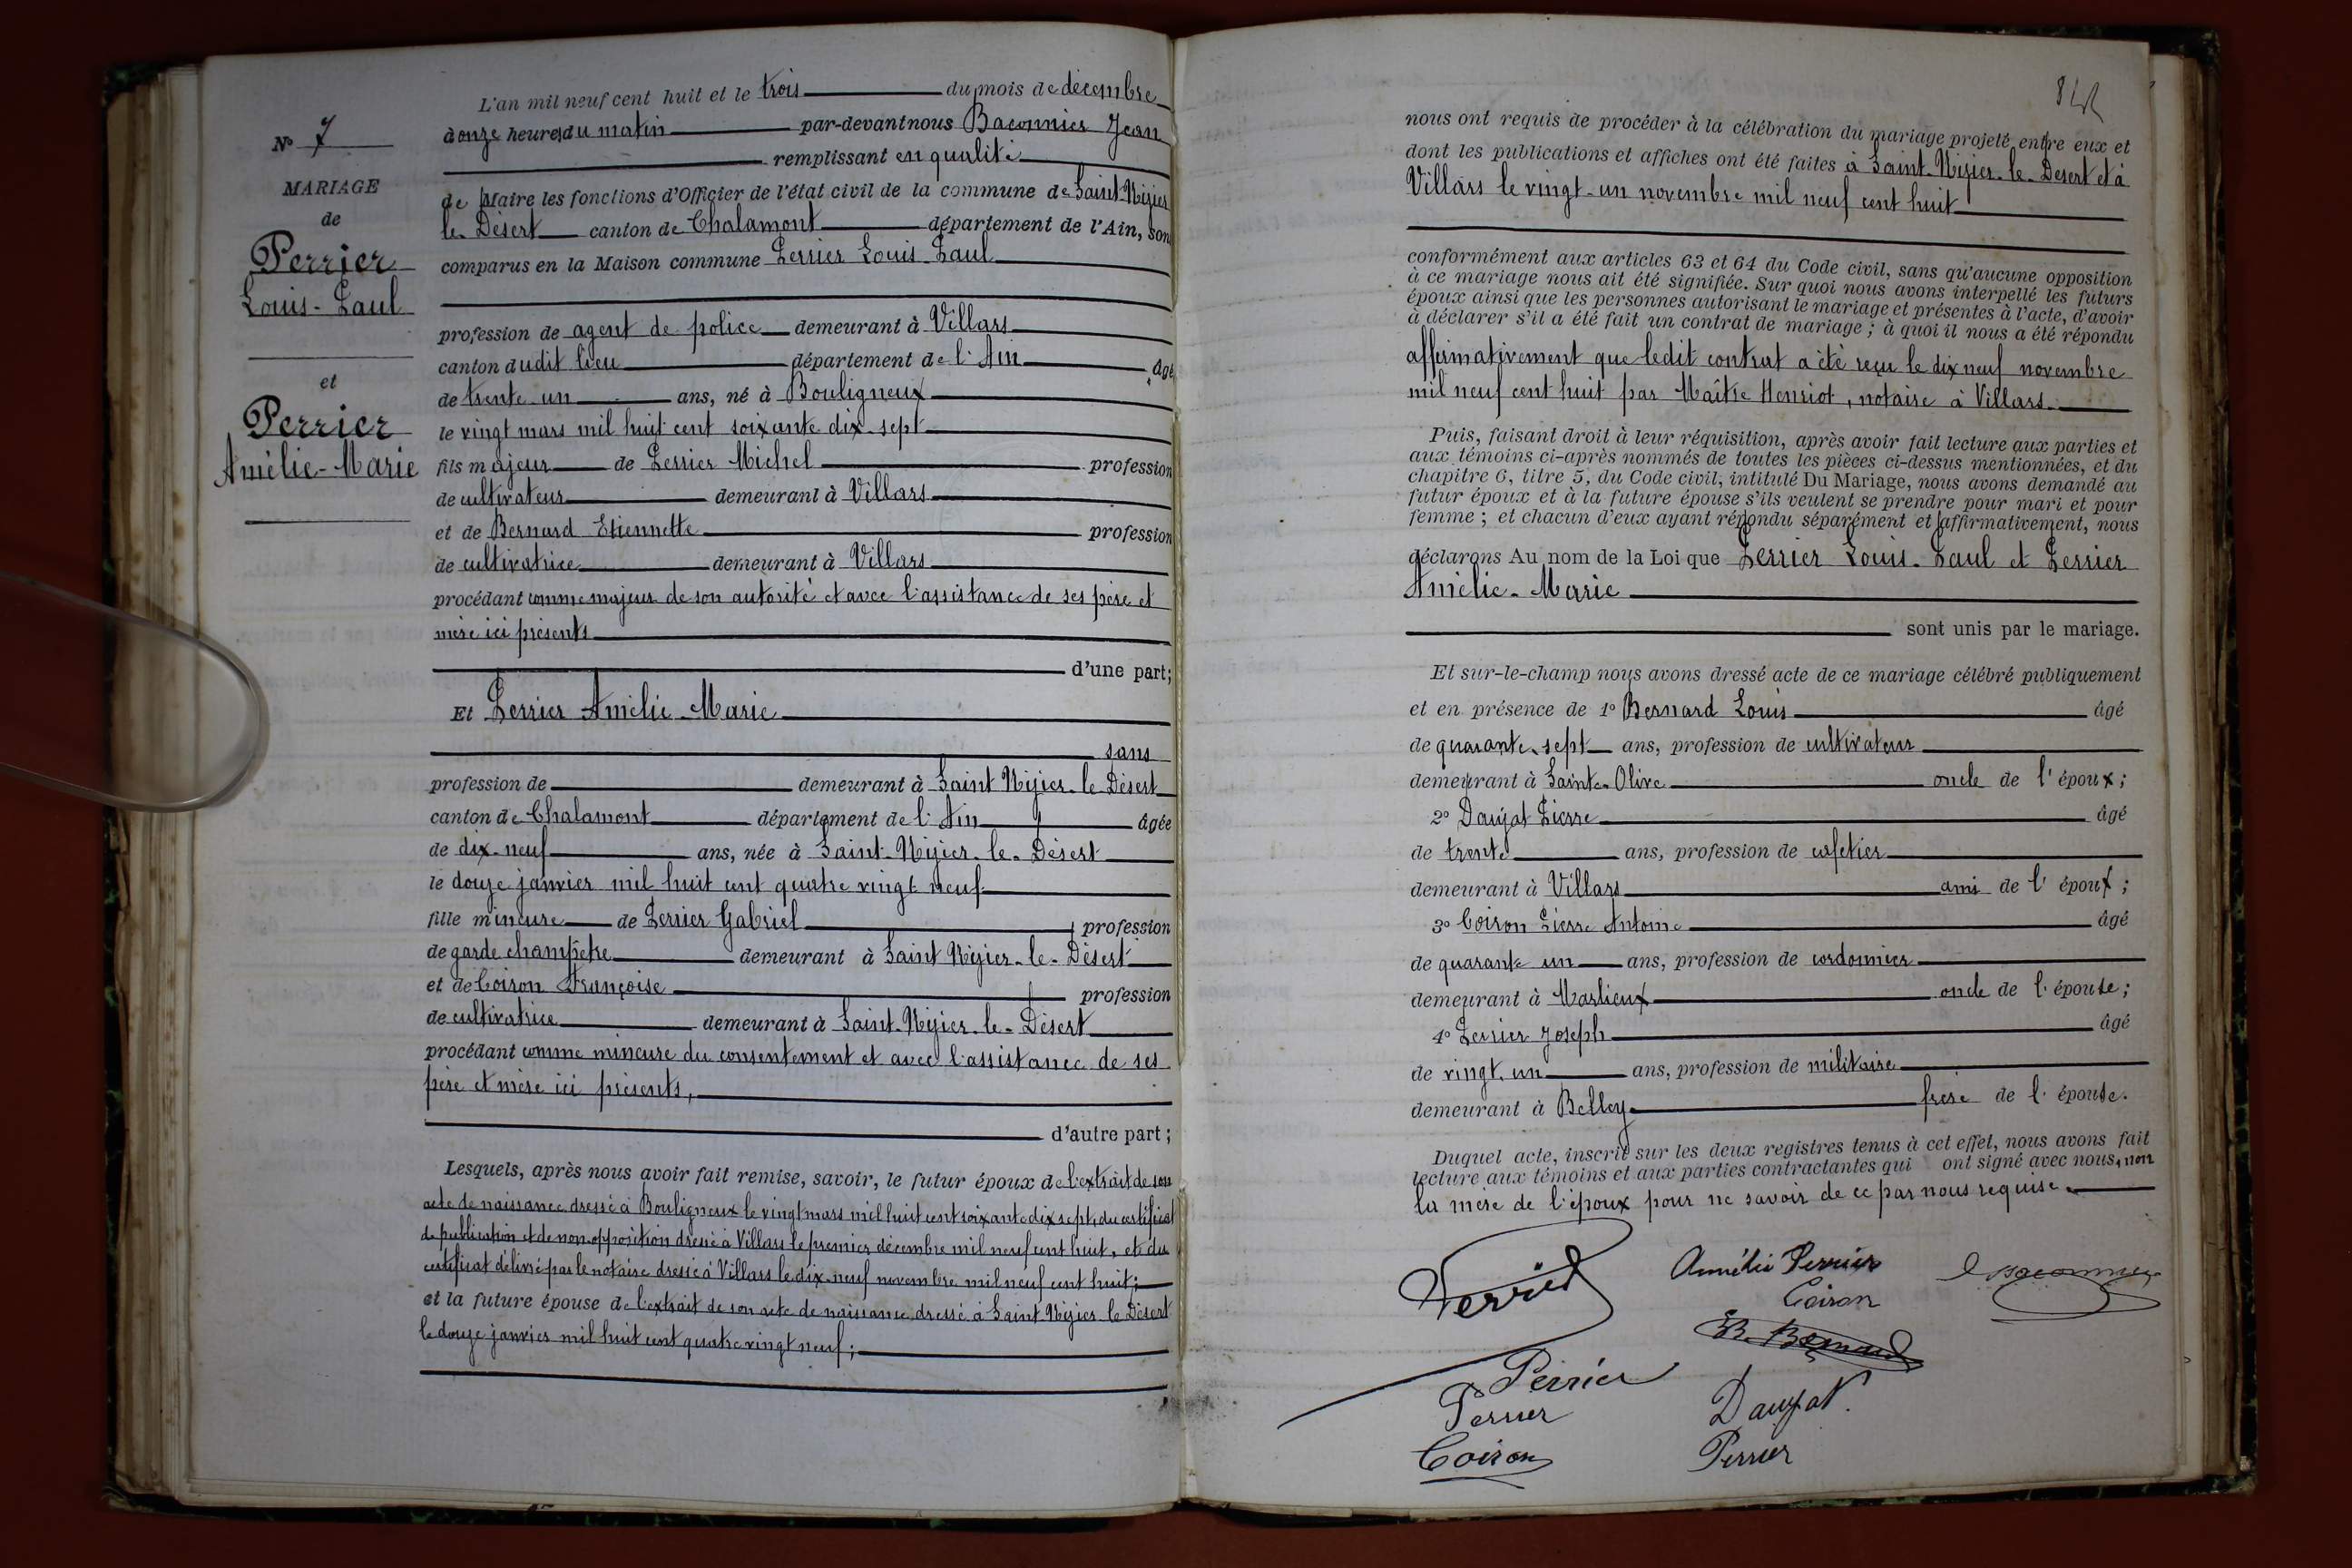 N° 7
MARIAGE
de
Perrier
Louis-Paul
et
Perrier
Amélie-Marie
L'an mil neuf cent huit et le trois du mois de décembre
à onze heures du matin par-devant nous Baconnier Jean
remplissant en qualité
de Maire les fonctions d'Officier de l'état civil de la commune de Saint-Nizier
le-Désert canton de Chalamont département de l'Ain, son
comparus en la Maison commune Perrier Louis-Paul
profession de agent de police demeurant à Villars
canton dudit lieu département de l'Ain âgé
de trente-un ans, né à Bouligneux
le vingt mars mil huit cent soixante dix-sept
fils majeur de Perrier Michel profession
de cultivateur demeurant à Villars
et de Bernard Etiennette profession
de cultivatrice demeurant à Villars
procédant comme majeur de son autorité et avec l'assistance de ses père et
mère ici présents
d'une part;
Et Perrier Amélie-Marie
sans
profession de demeurant à Saint Nizier-le-Désert
canton de Chalamont département de l'Ain âgée
de dix-neuf ans, née à Saint-Nizier-le-Désert
le douze janvier mil huit cent quatre vingt neuf
fille mineure de Perrier Gabriel profession
de garde champêtre demeurant à Saint Nizier-le-Désert
et de Coiron Françoise profession
de cultivatrice demeurant à Saint-Nizier-le-Désert
procédant comme mineure du consentement et avec l'assistance de ses
père et mère ici présents,
d'autre part;
Lesquels, après nous avoir fait remise, savoir, le futur époux de l'extrait de son
acte de naissance dressé à Bouligneux le vingt mars mil huit cent soixante dix sept, du certificat
de publication et de non-opposition dressé à Villars le premier décembre mil neuf cent huit, et du
certificat délivré par le notaire dressé à Villars le dix-neuf novembre mil neuf cent huit;
et la future épouse de l'extrait de son acte de naissance dressé à Saint Nizier le Désert
le douze janvier mil huit cent quatre vingt neuf;
nous ont requis de procéder à la célébration du mariage projeté entre eux et
dont les publications et affiches ont été faites à Saint-Nizier-le-Désert et à
Villars le vingt-un novembre mil neuf cent huit
conformément aux articles 63 et 64 du Code civil, sans qu'aucune opposition
à ce mariage nous ait été signifiée. Sur quoi nous avons interpellé les futurs
époux ainsi que les personnes autorisant le mariage et présentes à l'acte, d'avoir
à déclarer s'il a été fait un contrat de mariage; à quoi il nous a été répondu
affirmativement que ledit contrat a été reçu le dix neuf novembre
mil neuf cent huit par Maître Henriot, notaire à Villars.
Puis, faisant droit à leur réquisition, après avoir fait lecture aux parties et
aux témoins ci-après nommés de toutes les pièces ci-dessus mentionnées, et du
chapitre 6, titre 5, du Code civil, intitulé Du Mariage, nous avons demandé au
futur époux et à la future épouse s'ils veulent se prendre pour mari et pour
femme; et chacun d'eux ayant répondu séparément et affirmativement, nous
déclarons Au nom de la Loi que Perrier Louis-Paul et Perrier
Amélie-Marie
sont unis par le mariage.
Et sur-le-champ nous avons dressé acte de ce mariage célébré publiquement
et en présence de 1° Bernard Louis âgé
de quarante-sept ans, profession de cultivateur
demeurant à Sainte-Olive oncle de l'époux;
2° Daujat Pierre âgé
de trente ans, profession de cafetier
demeurant à Villars ami de l'époux;
3° Coiron Pierre Antoine âgé
de quarante un ans, profession de cordonnier
demeurant à Marlieux oncle de l'épouse;
4° Perrier Joseph âgé
de vingt un ans, profession de militaire
demeurant à Belley frère de l'épouse.
Duquel acte, inscrit sur les deux registres tenus à cet effet, nous avons fait
lecture aux témoins et aux parties contractantes qui ont signé avec nous, non
la mère de l'époux pour ne savoir de ce par nous requise.
Perrier Amélie Perrier Baconnier
Coiron
Bernard
Perrier
Perrier Daujat
Coiron Perrier